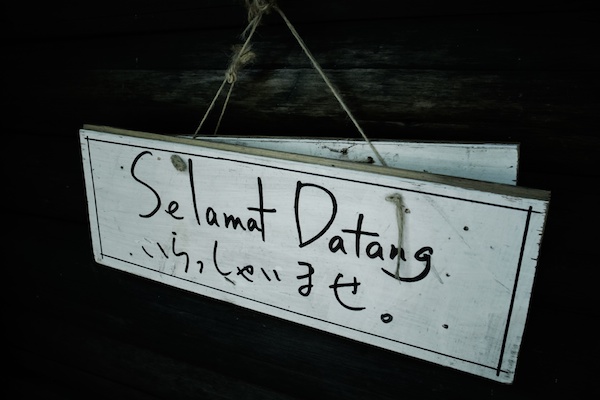 Selamat Datang
いらっしゃいませ。